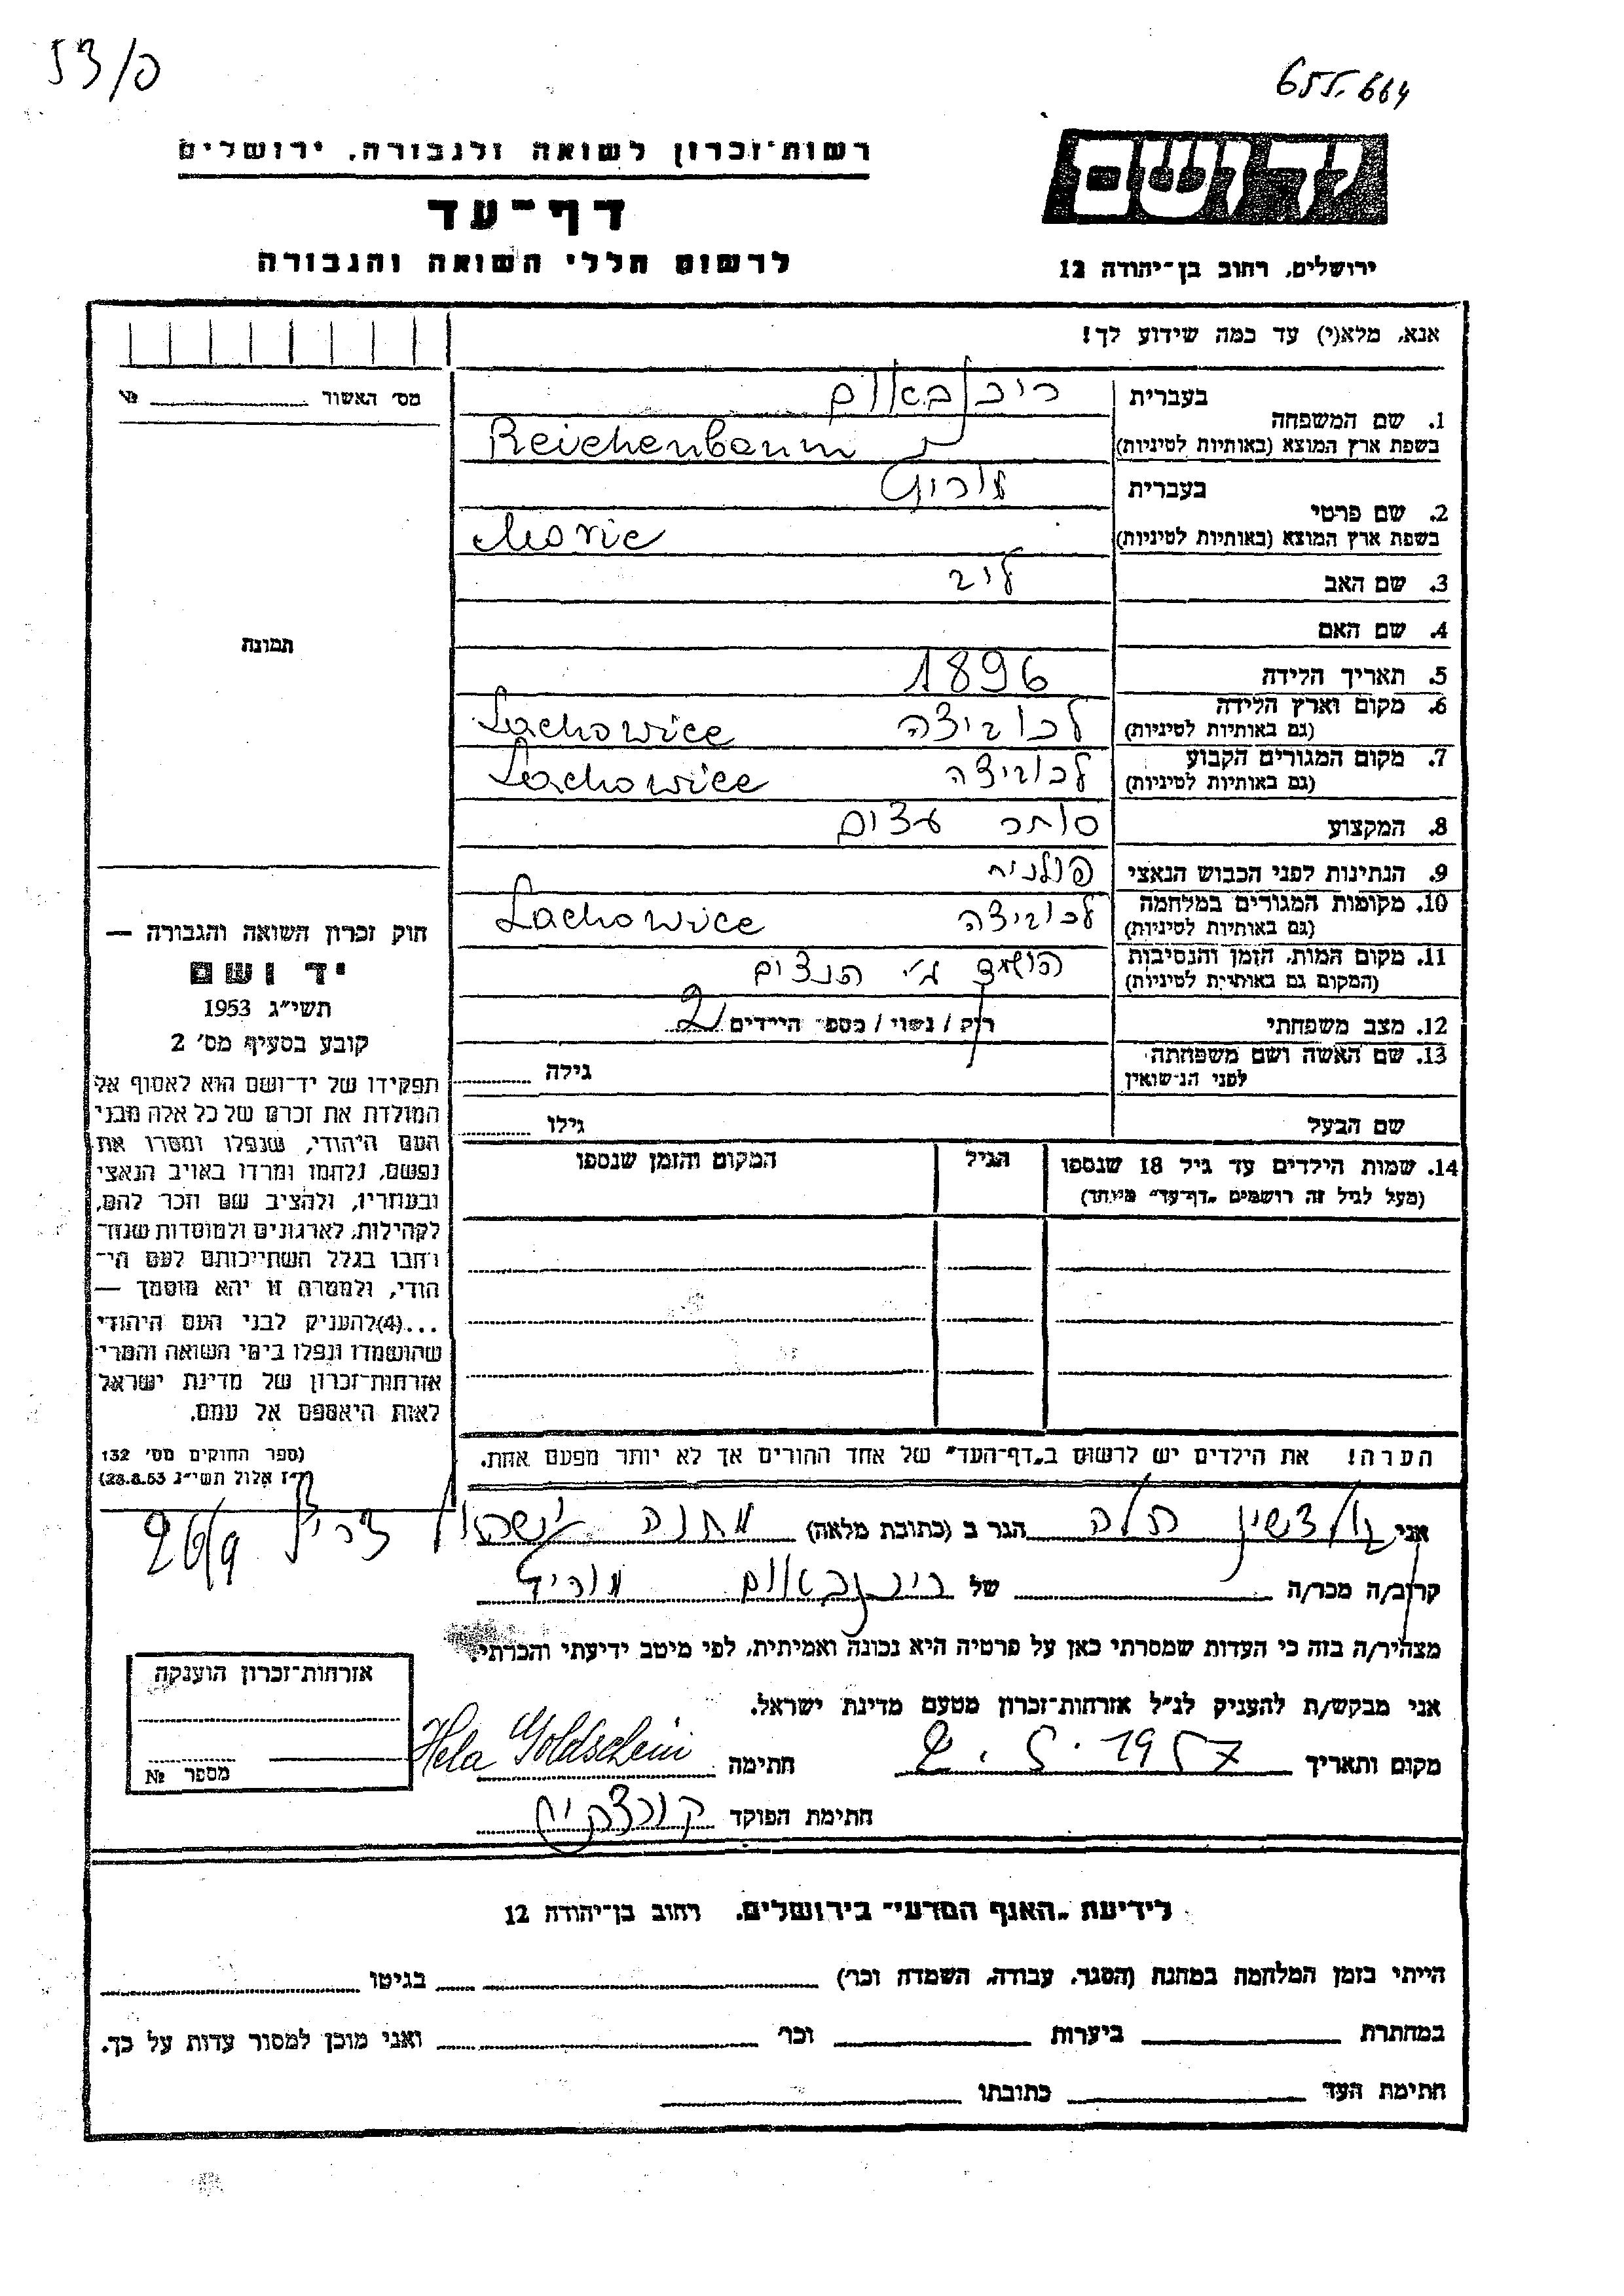 53/פ
655.664
רשות-זכרון לשואה ולגבורה, ירושלים
דף-עד
לרשום חללי השואה והגבורה
יד ושם
ירושלים, רחוב בן-יהודה 12
אנא, מלא(י) עד כמה שידוע לך!
מס' האשור № 
בעברית
1. שם המשפחה
בשפת ארץ המוצא (באותיות לטיניות) Reichenbaum
בעברית
2. שם פרטי
בשפת ארץ המוצא (באותיות לטיניות) Moric
3. שם האב ליב
4. שם האם
5. תאריך הלידה 1896
6. מקום וארץ הלידה לכוביצה Lachowice
(גם באותיות לטיניות)
7. מקום המגורים הקבוע לכוביצה Lachowice
(גם באותיות לטיניות)
8. המקצוע סוחר עצים
9. הנתינות לפני הכבוש הנאצי פולנית
10. מקומות המגורים במלחמה לכוביצה Lachowice
(גם באותיות לטיניות)
11. מקום המות, הזמן והנסיבות הושמד ע"י הנצים
(המקום גם באותיות לטיניות)
12. מצב משפחתי רוק / נשוי / מספר הילדים 2
13. שם האשה ושם משפחתה גילה
לפני הנישואין
שם הבעל גילו
14. שמות הילדים עד גיל 18 שנספו הגיל המקום והזמן שנספו
(מעל לגיל זה רושמים "דף-עד" מיוחד)
הערה! את הילדים יש לרשום ב"דף-העד" של אחד ההורים אך לא יותר מפעם אחת.
תמונה
חוק זכרון השואה והגבורה —
יד ושם
תשי"ג 1953
קובע בסעיף מס' 2
תפקידו של יד-ושם הוא לאסוף אל
המולדת את זכרם של כל אלה מבני
העם היהודי, שנפלו ומסרו את
נפשם, נלחמו ומרדו באויב הנאצי
ובעוזריו, ולהציב שם וזכר להם,
לקהילות, לארגונים ולמוסדות שנח-
רבו בגלל השתייכותם לעם הי-
הודי, ולמטרה זו יהא מוסמך —
...(4)להעניק לבני העם היהודי
שהושמדו ונפלו בימי השואה והמרי
אזרחות-זכרון של מדינת ישראל
לאות היאספם אל עמם.
(ספר החוקים מס' 132
י"ז אלול תשי"ג 28.8.53)
אני גולדשין הלה הגר ב (כתובת מלאה) מחנה ישראל צריף 26/9
קרוב/ה מכר/ה של
מצהיר/ה בזה כי העדות שמסרתי כאן על פרטיה היא נכונה ואמיתית, לפי מיטב ידיעתי והכרתי.
אני מבקש/ת להעניק לנ"ל אזרחות-זכרון מטעם מדינת ישראל.
מקום ותאריך 2.5.1957 חתימה Hela Goldschein
חתימת הפוקד
אזרחות-זכרון הוענקה
מספר №
לידיעת "האגף המדעי" בירושלים, רחוב בן-יהודה 12
הייתי בזמן המלחמה במחנה (הסגר, עבודה, השמדה וכו') בגיטו
במחתרת ביערות וכו' ואני מוכן למסור עדות על כך.
חתימת העד כתובתו